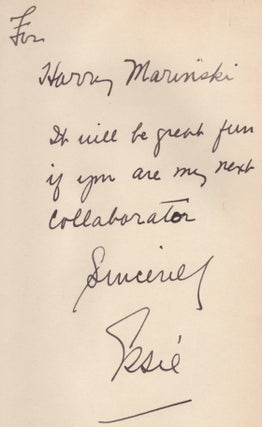 For
Harry Marinski
It will be great fun
if you are my next
Collaborator
Sincerely
Essie